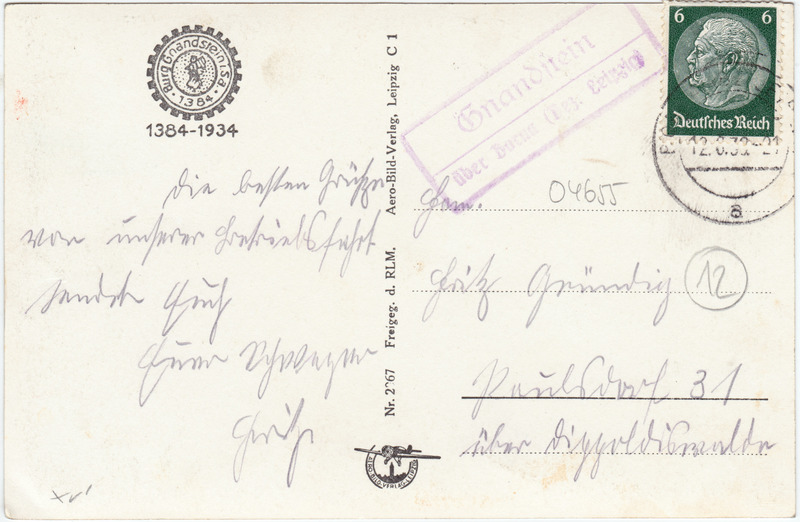 Burg Gnandstein i. Sa.
· 1384 ·
1384-1934
Die besten Grüße
von unserer Betriebsfahrt
sendet Euch
Euer Schwager
Nr. 2 67 Freigeg. d. RLM. Aero-Bild-Verlag, Leipzig C 1
AERO-BILD-VERLAG-LEIPZIG
Gnandstein
über Borna (Bez. Leipzig)
6 6
Deutsches Reich
12.8.39.-21
a
04655
Fam.
Fritz Gründig
12
Paulsdorf 31
über Dippoldiswalde